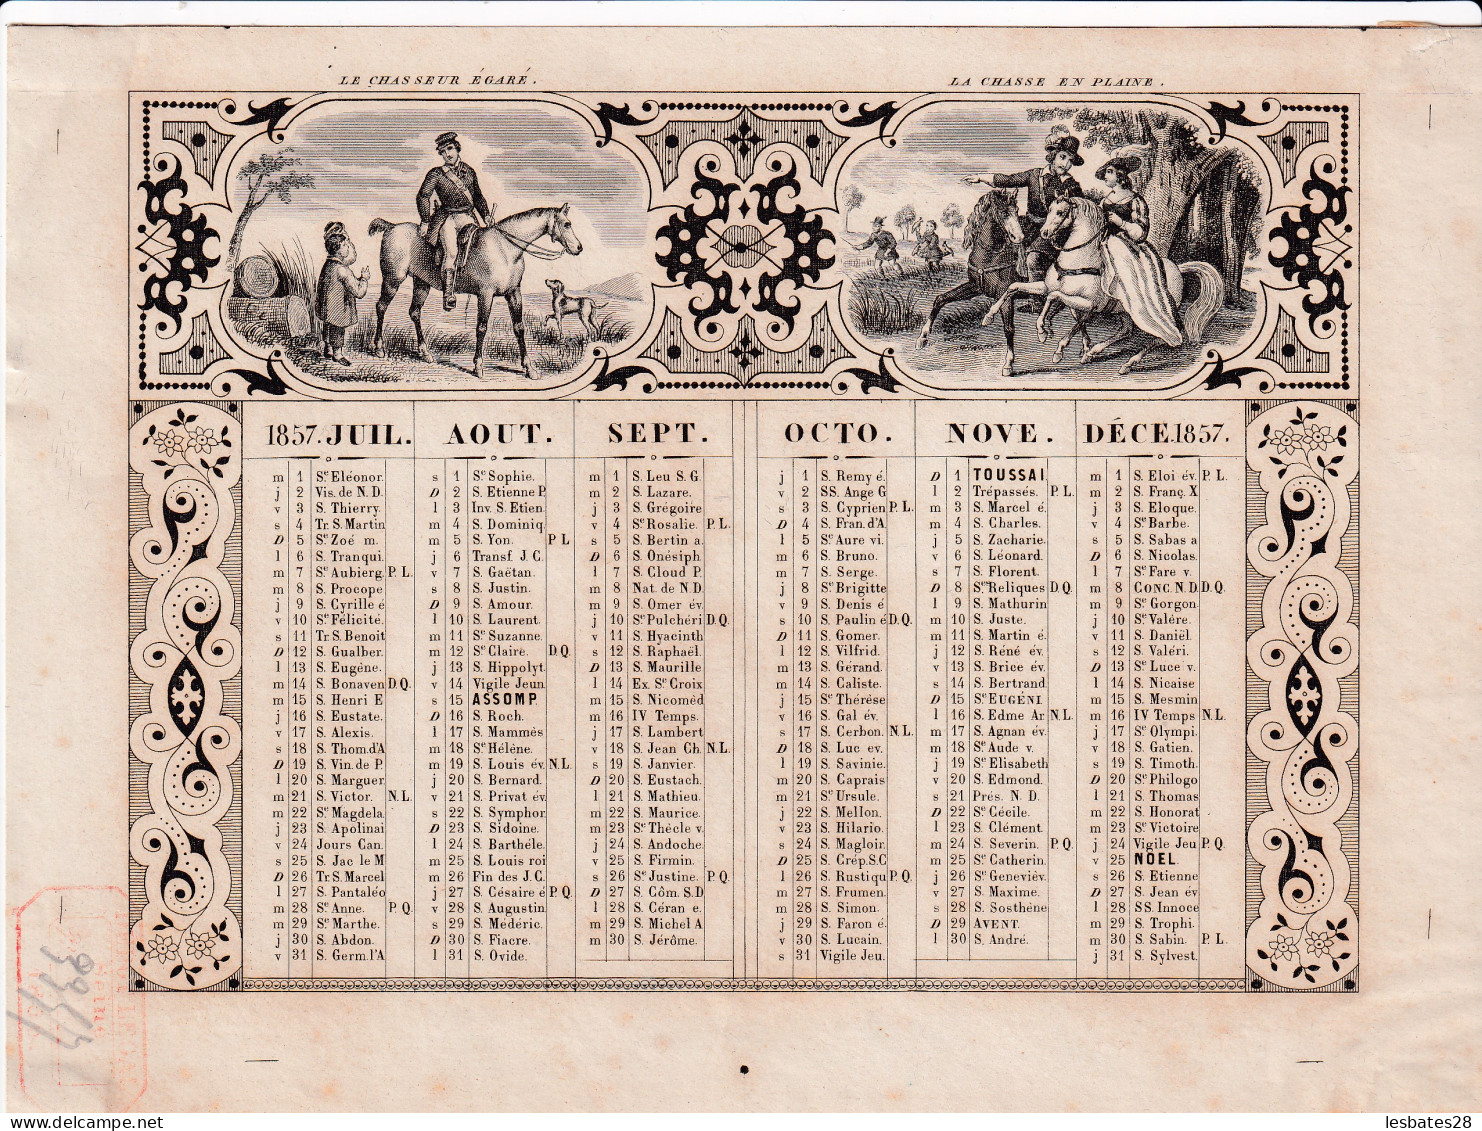 LE CHASSEUR ÉGARÉ.
LA CHASSE EN PLAINE.
1857. JUIL.
m 1 Ste Eléonor.
j 2 Vis. de N. D.
v 3 S. Thierry.
s 4 Tr. S. Martin
D 5 Ste Zoé m.
l 6 S. Tranqui.
m 7 Ste Aubierg. P. L.
m 8 S. Procope
j 9 S. Cyrille é
v 10 Ste Félicité.
s 11 Tr. S. Benoit
D 12 S. Gualber.
l 13 S. Eugène.
m 14 S. Bonaven D. Q.
m 15 S. Henri E
j 16 S. Eustate.
v 17 S. Alexis.
s 18 S. Thom. d'A
D 19 S. Vin. de P.
l 20 S. Marguer.
m 21 S. Victor. N. L.
m 22 Ste Magdela.
j 23 S. Apolinai
v 24 Jours Can.
s 25 S. Jac le M
D 26 Tr. S. Marcel
l 27 S. Pantaléo
m 28 Ste Anne. P. Q.
m 29 Ste Marthe.
j 30 S. Abdon.
v 31 S. Germ. l'A
AOUT.
s 1 Ste Sophie.
D 2 S. Etienne P.
l 3 Inv. S. Etien.
m 4 S. Dominiq.
m 5 S. Yon. P. L
j 6 Transf. J. C.
v 7 S. Gaëtan.
s 8 S. Justin.
D 9 S. Amour.
l 10 S. Laurent.
m 11 Ste Suzanne.
m 12 Ste Claire. D. Q.
j 13 S. Hippolyt.
v 14 Vigile Jeun
s 15 ASSOMP.
D 16 S. Roch.
l 17 S. Mammès
m 18 Ste Hélène.
m 19 S. Louis év. N. L.
j 20 S. Bernard.
v 21 S. Privat év.
s 22 S. Symphor.
D 23 S. Sidoine.
l 24 S. Barthéle.
m 25 S. Louis roi
m 26 Fin des J. C.
j 27 S. Césaire é P. Q.
v 28 S. Augustin
s 29 S. Médéric.
D 30 S. Fiacre.
l 31 S. Ovide.
SEPT.
m 1 S. Leu S. G.
m 2 S. Lazare.
j 3 S. Grégoire
v 4 Ste Rosalie. P. L.
s 5 S. Bertin a.
D 6 S. Onésiph.
l 7 S. Cloud P.
m 8 Nat. de N. D.
m 9 S. Omer év.
j 10 Ste Pulchéri D. Q.
v 11 S. Hyacinth
s 12 S. Raphaël.
D 13 S. Maurille
l 14 Ex. Ste Croix
m 15 S. Nicoméd
m 16 IV Temps.
j 17 S. Lambert
v 18 S. Jean Ch. N. L.
s 19 S. Janvier.
D 20 S. Eustach.
l 21 S. Mathieu.
m 22 S. Maurice.
m 23 Ste Thècle v.
j 24 S. Andoche.
v 25 S. Firmin.
s 26 Ste Justine. P. Q.
D 27 S. Côm. S. D
l 28 S. Céran e.
m 29 S. Michel A
m 30 S. Jérôme.
OCTO.
j 1 S. Remy é.
v 2 SS. Ange G
s 3 S. Cyprien P. L.
D 4 S. Fran. d'A.
l 5 Ste Aure vi.
m 6 S. Bruno.
m 7 S. Serge.
j 8 Ste Brigitte
v 9 S. Denis é
s 10 S. Paulin é D. Q.
D 11 S. Gomer.
l 12 S. Vilfrid.
m 13 S. Gérand.
m 14 S. Caliste.
j 15 Ste Thérèse
v 16 S. Gal év.
s 17 S. Cerbon. N. L.
D 18 S. Luc ev.
l 19 S. Savinie.
m 20 S. Caprais
m 21 Ste Ursule.
j 22 S. Mellon.
v 23 S. Hilario.
s 24 S. Magloir.
D 25 S. Crép. S. C
l 26 S. Rustiqu P. Q.
m 27 S. Frumen.
m 28 S. Simon.
j 29 S. Faron é.
v 30 S. Lucain.
s 31 Vigile Jeu.
NOVE.
D 1 TOUSSAI.
l 2 Trépassés. P. L.
m 3 S. Marcel é.
m 4 S. Charles.
j 5 S. Zacharie.
v 6 S. Léonard.
s 7 S. Florent.
D 8 Stes Reliques D. Q.
l 9 S. Mathurin
m 10 S. Juste.
m 11 S. Martin é.
j 12 S. Réné év.
v 13 S. Brice év.
s 14 S. Bertrand.
D 15 Ste EUGÉNI.
l 16 S. Edme Ar. N. L.
m 17 S. Agnan év.
m 18 Ste Aude v.
j 19 Ste Elisabeth
v 20 S. Edmond.
s 21 Prés. N. D.
D 22 Ste Cécile.
l 23 S. Clément.
m 24 S. Severin. P. Q.
m 25 Ste Catherin.
j 26 Ste Genevièv.
v 27 S. Maxime.
s 28 S. Sosthène
D 29 AVENT.
l 30 S. André.
DÉCE. 1857.
m 1 S. Eloi év. P. L.
m 2 S. Franç. X
j 3 S. Eloque.
v 4 Ste Barbe.
s 5 S. Sabas a
D 6 S. Nicolas.
l 7 Ste Fare v.
m 8 CONC. N. D. D. Q.
m 9 Ste Gorgon.
j 10 Ste Valère.
v 11 S. Daniël.
s 12 S. Valéri.
D 13 Ste Luce v.
l 14 S. Nicaise
m 15 S. Mesmin
m 16 IV Temps N. L.
j 17 Ste Olympi.
v 18 S. Gatien.
s 19 S. Timoth.
D 20 Ste Philogo
l 21 S. Thomas
m 22 S. Honorat
m 23 Ste Victoire
j 24 Vigile Jeu P. Q.
v 25 NOEL.
s 26 S. Etienne
D 27 S. Jean év
l 28 SS. Innoce
m 29 S. Trophi.
m 30 S. Sabin. P. L.
j 31 S. Sylvest.
lesbates28